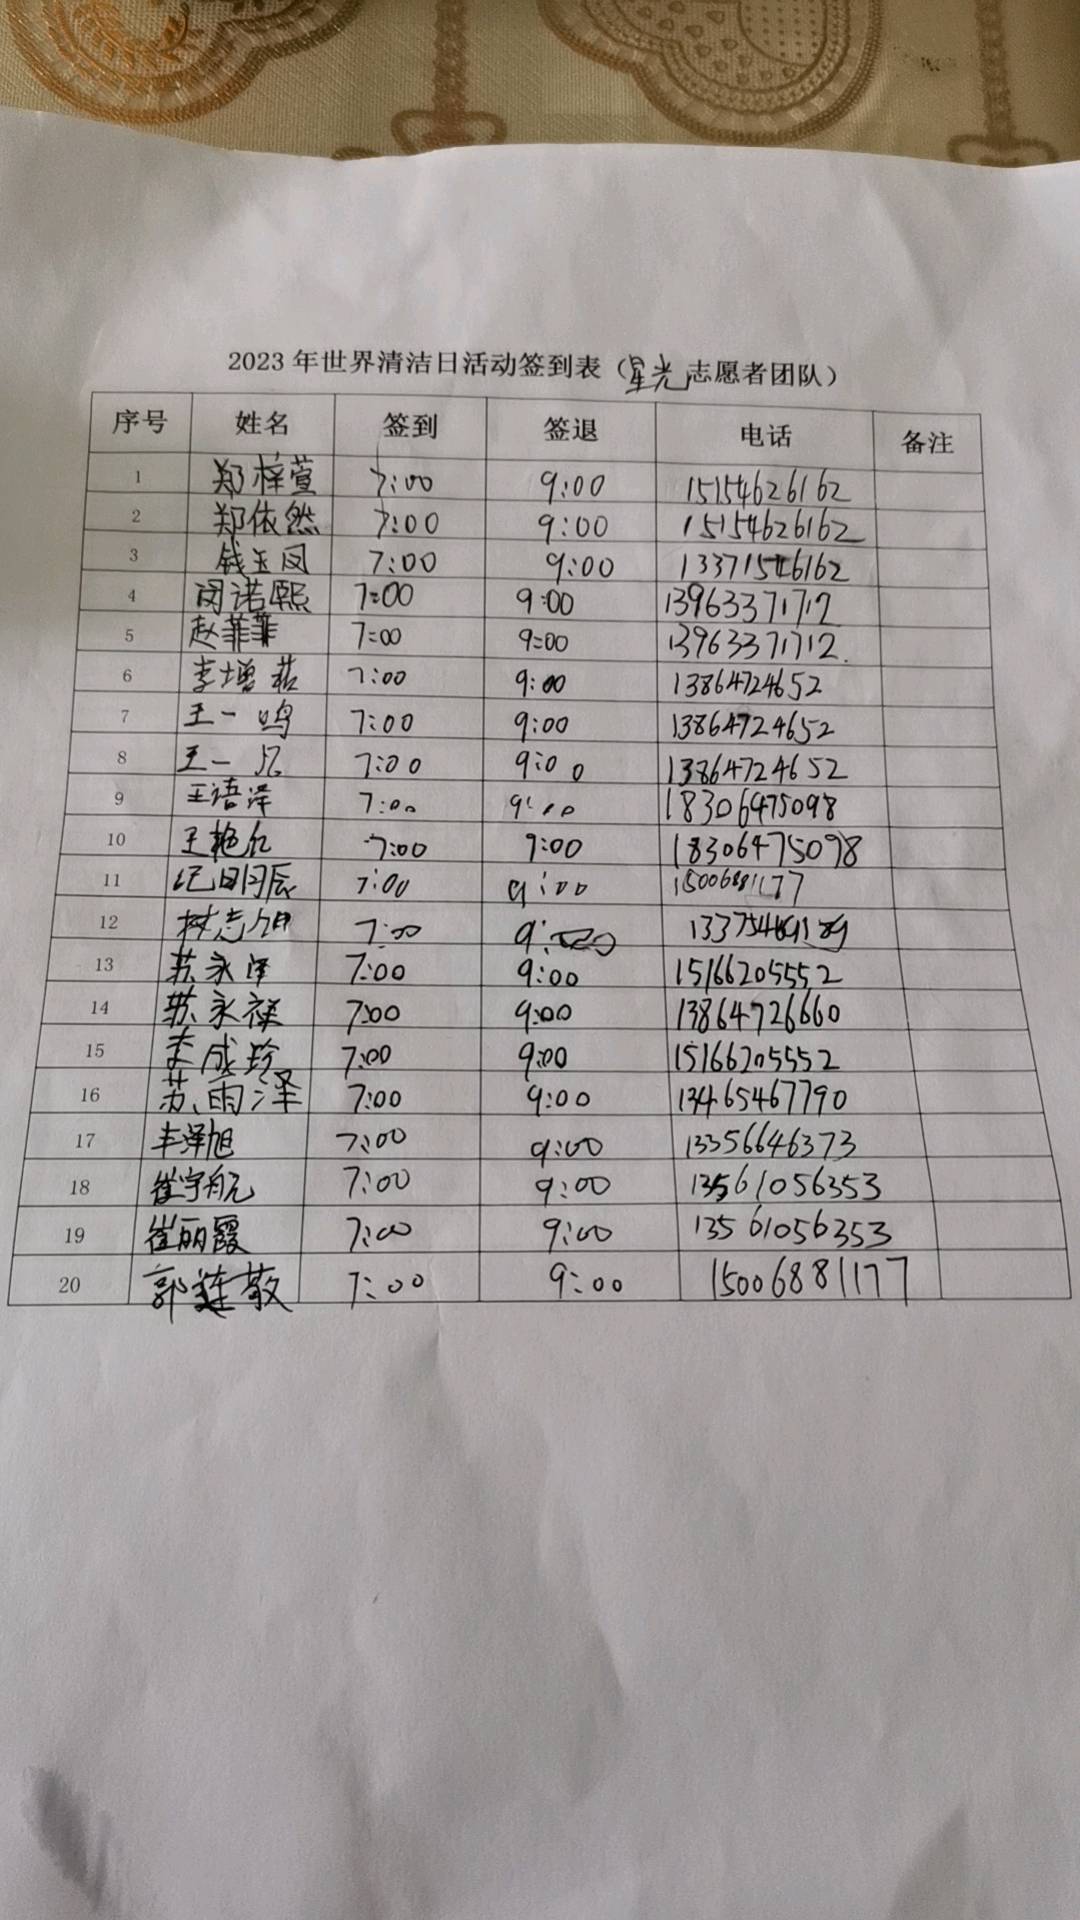 2023年世界清洁日活动签到表（星光志愿者团队）
序号 姓名 签到 签退 电话 备注
1 郑梓萱 7:00 9:00 15154626162
2 郑依然 7:00 9:00 15154626162
3 钱玉凤 7:00 9:00 13371546162
4 闵诺熙 7:00 9:00 13963371712
5 赵菲菲 7:00 9:00 13963371712
6 李增 7:00 9:00 13864724652
7 王一鸣 7:00 9:00 13864724652
8 王一 7:00 9:00 13864724652
9 王语泽 7:00 9:00 18306475098
10 王艳红 7:00 9:00 18306475098
11 纪明辰 7:00 9:00 15006881177
12 志 7:00 9:
13 苏永泽 7:00 9:00 15166205552
14 苏永禄 7:00 9:00 13864726660
15 李成珍 7:00 9:00 15166205552
16 苏雨泽 7:00 9:00 13465467790
17 丰泽旭 7:00 9:00 13356646373
18 崔宇航 7:00 9:00 13561056353
19 崔丽霞 7:00 9:00 13561056353
20 郭莲敬 7:00 9:00 15006881177